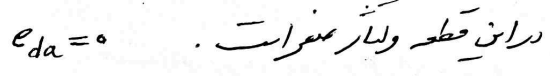 در این قطعه ولتاژ صفر است . e_da = ۰